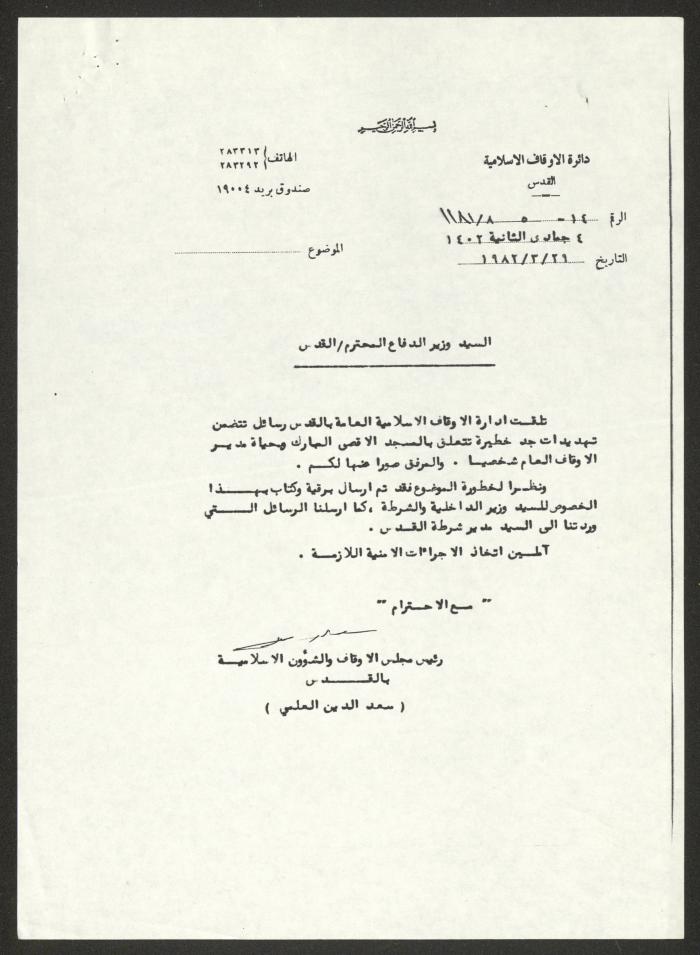 بسم الله الرحمن الرحيم
دائرة الاوقاف الاسلامية
القدس
الهاتف { ٢٨٣٣١٣
٢٨٣٢٩٢
صندوق بريد ١٩٠٠٤
الرقم ١٤ - ٥ ٨/١١٨١
٤ جمادى الثانية ١٤٠٢
التاريخ ١٩٨٢/٣/٢٩
الموضوع
السيد وزير الدفاع المحترم/القدس
تلقت ادارة الاوقاف الاسلامية العامة بالقدس رسائل تتضمن
تهديدات جد خطيرة تتعلق بالمسجد الاقصى المبارك وبحياة مدير
الاوقاف العام شخصيا . والمرفق صورا عنها لكم .
ونظرا لخطورة الموضوع فقد تم ارسال برقية وكتاب بهـــذا
الخصوص للسيد وزير الداخلية والشرطة ،كما ارسلنا الرسائل الـــتي
وردتنا الى السيد مدير شرطة القدس .
آملين اتخاذ الاجراءات الامنية اللازمة .
" مع الاحترام "
رئيس مجلس الاوقاف والشؤون الاسلامية
بالقــــدس
( سعد الدين العلمي )